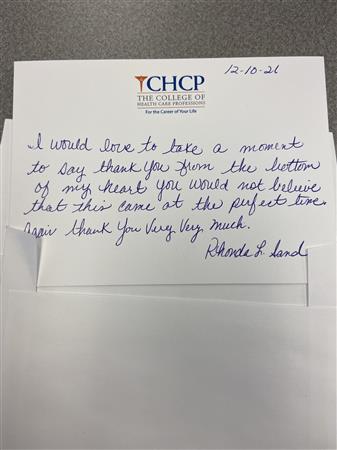 12-10-21
CHCP
THE COLLEGE OF
HEALTH CARE PROFESSIONS
For the Career of Your Life
I would love to take a moment
to say thank you from the bottom
of my heart you would not believe
that this came at the perfect time.
Again thank you Very, Very, much.
Rhonda L. Sand